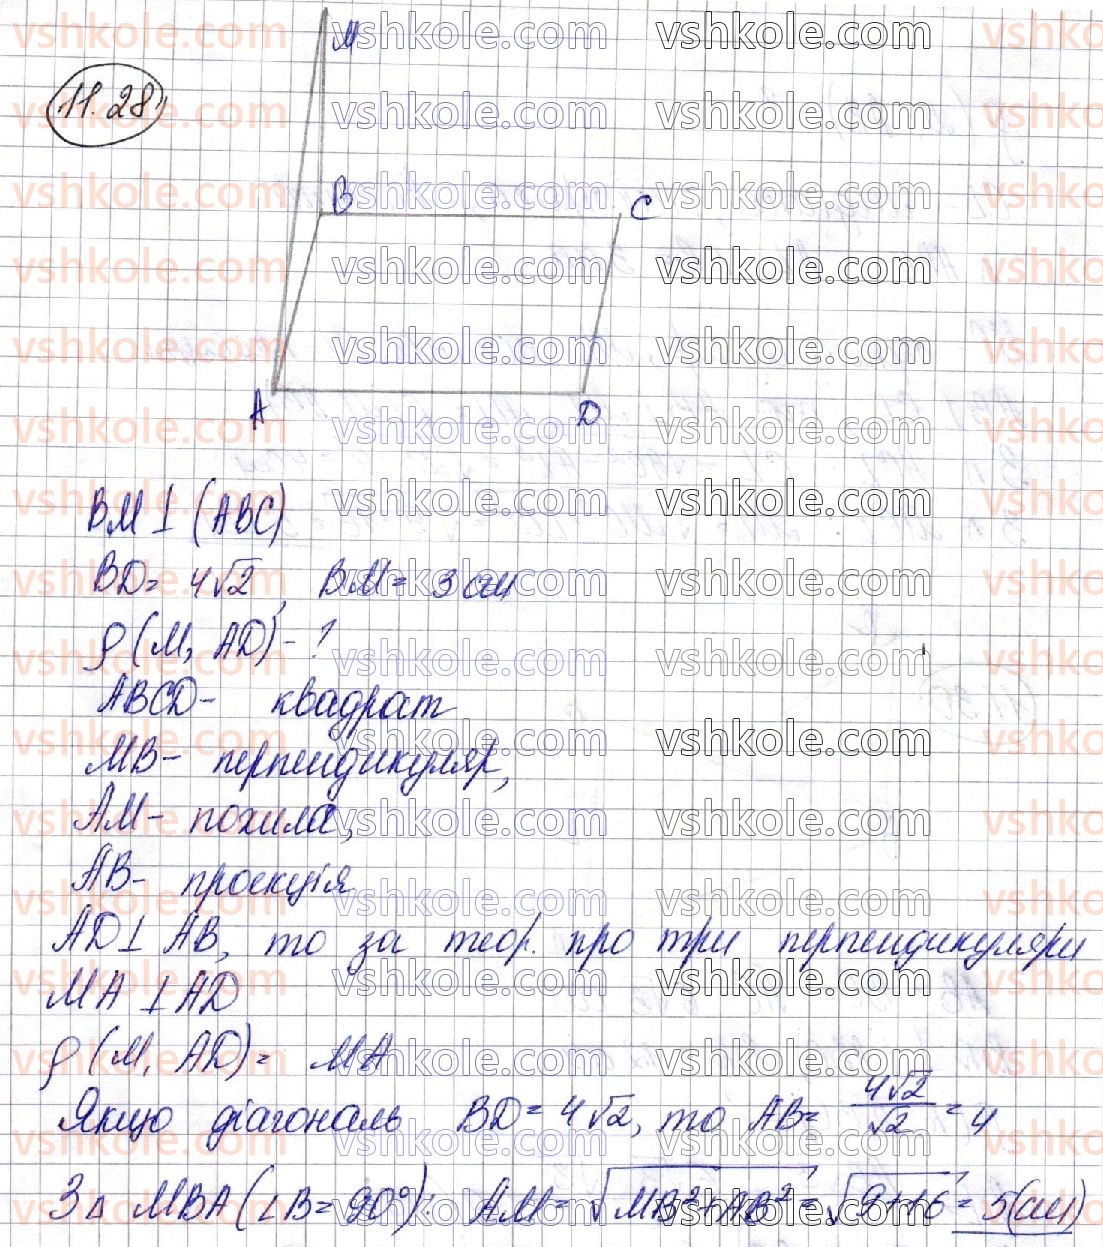 11.28
M
B
C
A
D
BM ⊥ (ABC)
BD = 4√2, BM = 3 см
ρ(M, AD) - ?
ABCD - квадрат
MB - перпендикуляр,
AM - похила,
AB - проекція
AD ⊥ AB, то за теор. про три перпендикуляри
MA ⊥ AD
ρ(M, AD) = MA
Якщо діагональ BD = 4√2, то AB = 4√2/√2 = 4
З Δ MBA (∠B = 90°): AM = √(MB² + AB²) = √(9+16) = 5 (см)
vshkole.com